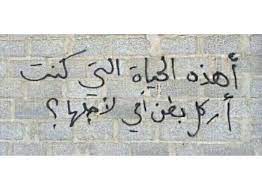 أهذه الحياة التي كنت
أركل بطن أمي لأجلها؟